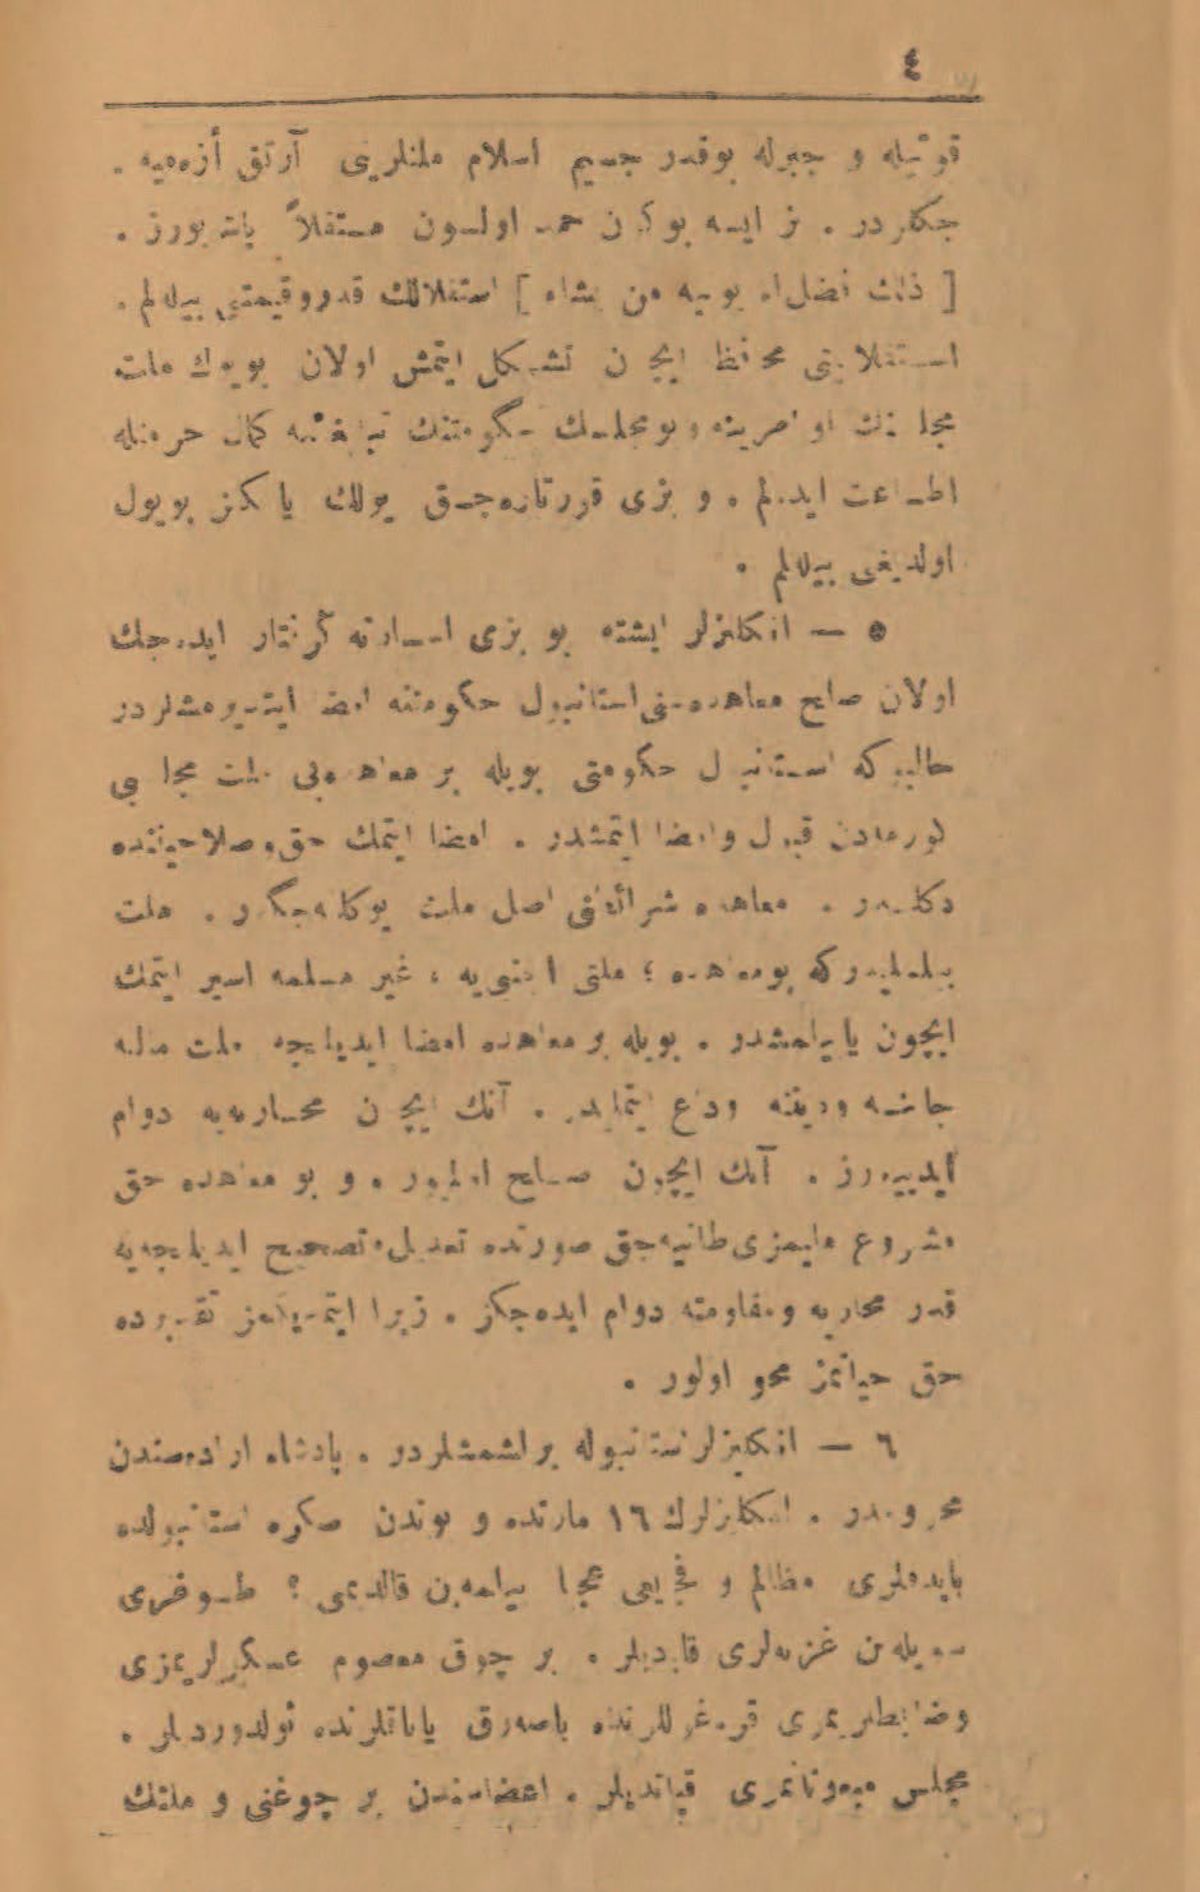 ٤
قوتيله و جبرله بوقدر جسيم اسلام ملتلرينى آرتق أزه‌ميه .
جكلردر . بز ايسه بوكون حمد اولسون مستقلاً ياشايورز .
[ ذلك فضل الله يؤتيه من يشاء ] استقلالك قدر وقيمتنى بيله‌لم .
استقلاليتى محافظه ايچون تشكل ايتمش اولان بويوك ملت
مجلسنك اوامرينه و بو مجلسك حكومتنك تبليغاتنه كمال حرمتله
اطاعت ايده‌لم . و بزى قورتاره‌جق يولك يالكز بو يول
اولديغنى بيله‌لم .
٥ — انكليزلر ايشته بو بزى اسارته گرفتار ايده‌جك
اولان صلح معاهده‌سنى استانبول حكومتنه امضا ايتديرمشلردر
حالبوكه استانبول حكومتى بويله بر معاهده‌يى ملت مجلسى
اولمادن قبول و امضا ايتمشدر . امضا ايتمك حق و صلاحيتنده
دكلدر . معاهده شرائطنى اصل ملت يوكله‌نه‌جكدر . ملت
بيلمليدركه بو معاهده ؛ ملتى اجنبى‌يه ، غير مسلمه اسير ايتمك
ايچون ياپيلمشدر . بويله بر معاهده امضا ايديلنجه ملت مالنه
جاننه و ديننه وداع ايتمليدر . آنك ايچون محاربه‌يه دوام
ايدييورز . آنك ايچون صلح اولميور . و بو معاهده حق
مشروع مليمزى طانيه‌جق صورتده تعديل و تصحيح ايديلنجه‌يه
قدر محاربه و مقاومته دوام ايده‌جكز . زيرا ايتمديكمز تقديرده
حق حياتمز محو اولور .
٦ — انكليزلر استانبوله يرلشمشلردر . پادشاه اراده‌سندن
محرومدر . انكليزلرك ١٦ مارتده و بوندن صكره استانبولده
ياپدقلرى مظالم و فجايعى عجبا بيلمه‌ين قالدىمى ؟ طوغرى
سويله‌ين غزته‌لرى قاپاديلر . بر چوق معصوم عسكرلريمزى
و ضابطلريمزى قره‌غوللرنده باصه‌رق ياتاقلرنده ئولدورديلر .
مجلس مبعوثانمزى قپاتديلر . اعضاسندن بر چوغنى و ملتك